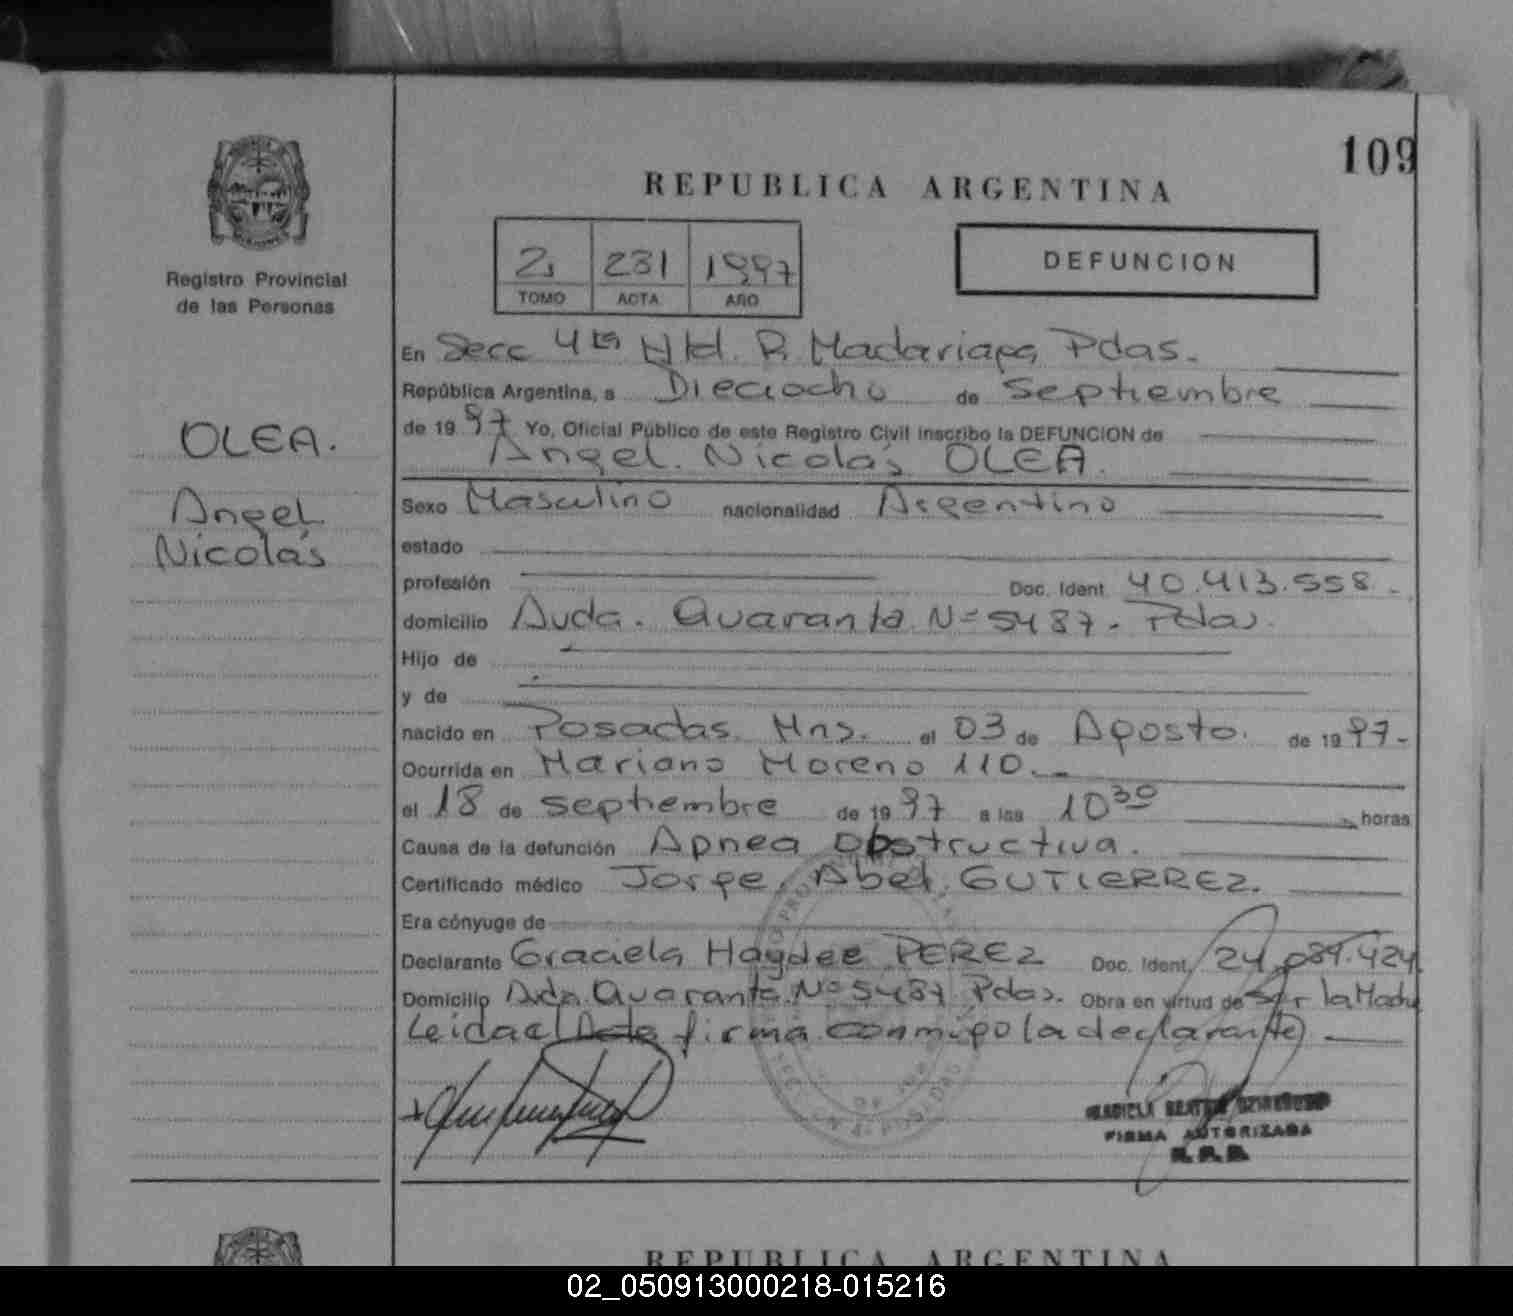 109
REPUBLICA ARGENTINA
2 231 1997
TOMO ACTA AÑO
DEFUNCION
Registro Provincial
de las Personas
OLEA.
Angel
Nicolás
En Secc 4ta Htal. R. Madariaga, Pdas.
República Argentina, a Dieciocho de Septiembre
de 1997 Yo, Oficial Público de este Registro Civil inscribo la DEFUNCION de
Angel. Nicolás OLEA.
Sexo Masculino nacionalidad Argentino
estado
profesión Doc. Ident. 40.413.558.-
domicilio Avda. Quaranta Nº 5487- Pdas.
Hijo de
y de
nacido en Posadas Mns. el 03 de Agosto. de 1997-
Ocurrida en Mariano Moreno 110.-
el 18 de septiembre de 1997 a las 10 30 horas
Causa de la defunción Apnea Obstructiva.
Certificado médico Jorge Abel GUTIERREZ.
Era cónyuge de
Declarante Graciela Haydee PEREZ Doc. Ident. 24.089.424
Domicilio Avda. Quaranta Nº 5487 Pdas. Obra en virtud de ser la Madre
Leida el Acta firma conmigo la declarante
FIRMA AUTORIZADA
REPUBLICA ARGENTINA
02_050913000218-015216